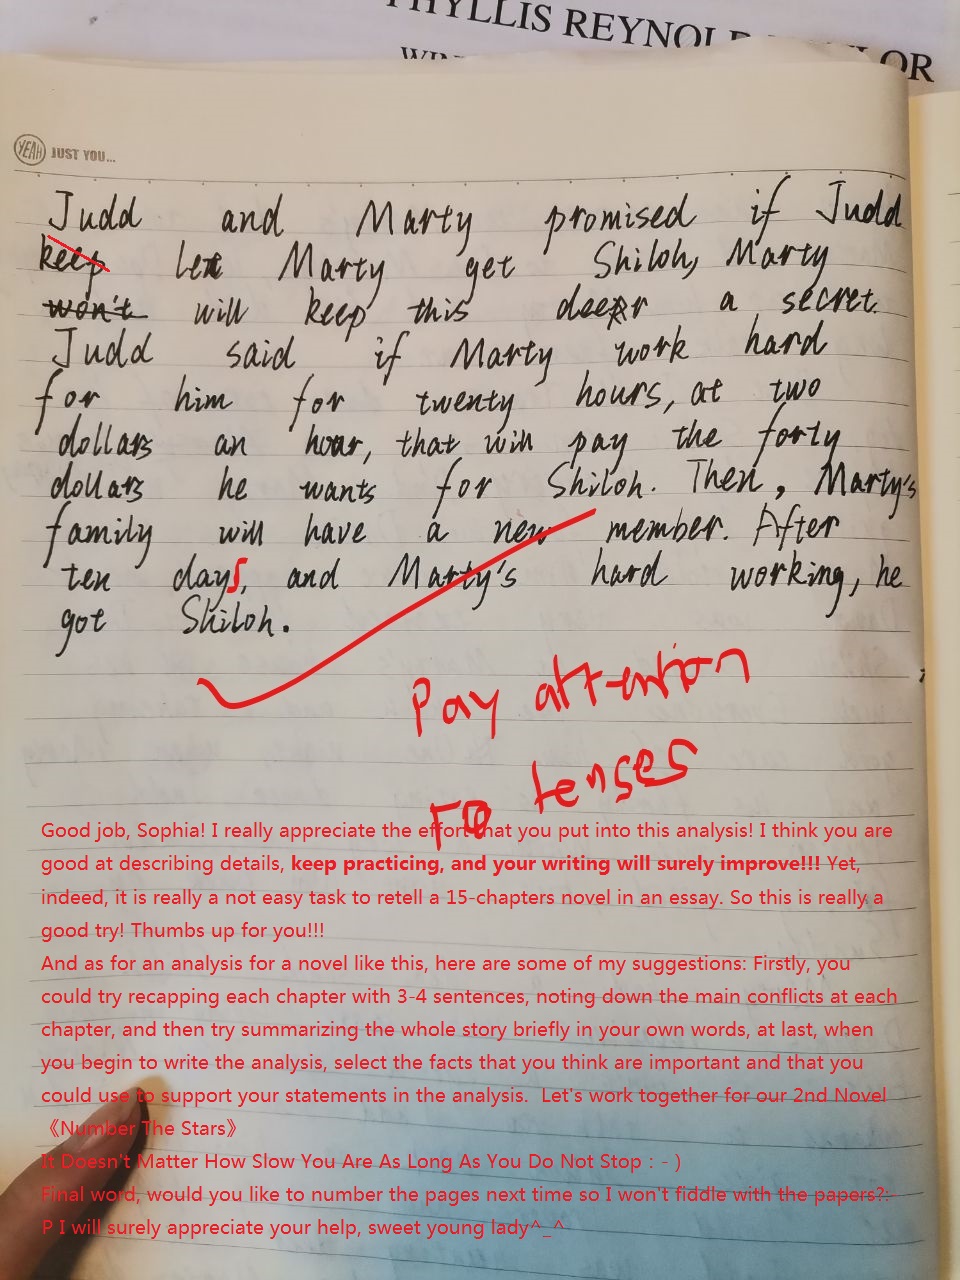 PHYLLIS REYNOL
OR
YEAH JUST YOU...
Judd and Marty promised if Judd
keep let Marty get Shiloh, Marty
won't will keep this deer a secret.
Judd said if Marty work hard
for him for twenty hours, at two
dollars an hour, that will pay the forty
dollars he wants for Shiloh. Then, Marty's
family will have a new member. After
ten days, and Marty's hard working, he
got Shiloh.
Pay attention
to tenses
Good job, Sophia! I really appreciate the effort that you put into this analysis! I think you are
good at describing details, keep practicing, and your writing will surely improve!!! Yet,
indeed, it is really a not easy task to retell a 15-chapters novel in an essay. So this is really a
good try! Thumbs up for you!!!
And as for an analysis for a novel like this, here are some of my suggestions: Firstly, you
could try recapping each chapter with 3-4 sentences, noting down the main conflicts at each
chapter, and then try summarizing the whole story briefly in your own words, at last, when
you begin to write the analysis, select the facts that you think are important and that you
could use to support your statements in the analysis. Let's work together for our 2nd Novel
《Number The Stars》
It Doesn't Matter How Slow You Are As Long As You Do Not Stop : - )
Final word, would you like to number the pages next time so I won't fiddle with the papers?:
P I will surely appreciate your help, sweet young lady^_^